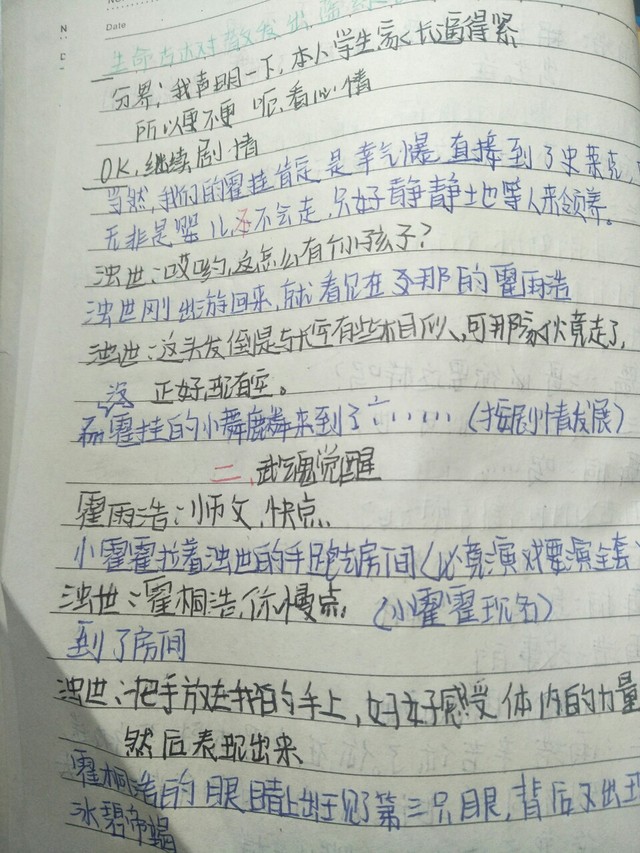 No
Date
生命
分界：我声明一下，本人学生，家长逼得紧
所以更不更 呃，看心情
OK，继续剧情
当然，我们的霍挂肯定是幸气爆，直接到了史莱克，
无非是婴儿，不会走，只好静静土也等人来领养。
浊世：哎哟，这怎么有个小孩子？
浊世刚出游回来，就看见在那的霍雨浩
浊世：这头发倒是与长空有些相似，可那家伙竟走了，
正好，现有空。
霍挂的小舞麟来到了六……（按剧情发展）
二、武魂觉醒
霍雨浩：师父，快点
小霍霍拉着浊世的手跑去房间（必竟演戏要演全套）
浊世：霍桐浩，你慢点。（小霍霍现名）
到了房间
浊世：把手放在我的手上，好好感受体内的力量
然后表现出来
霍桐浩的眼睛上出现了第三只眼，背后又出现
冰碧帝蝎